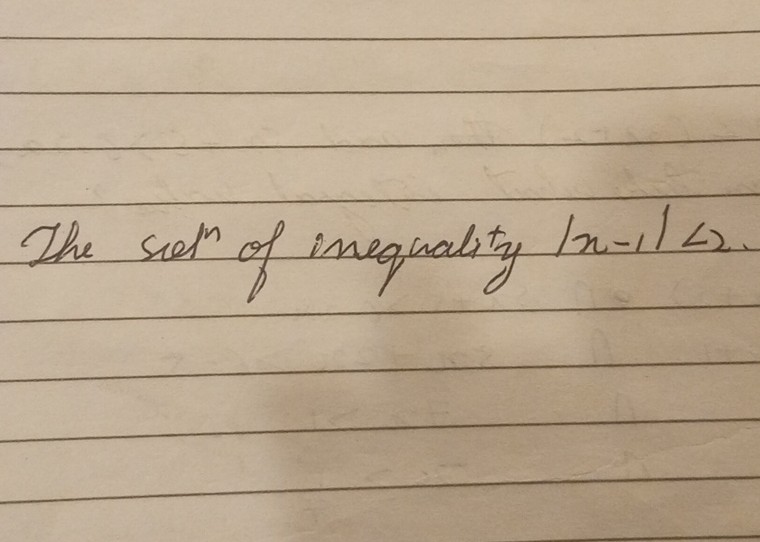 The solⁿ of inequality |x-1| <2.